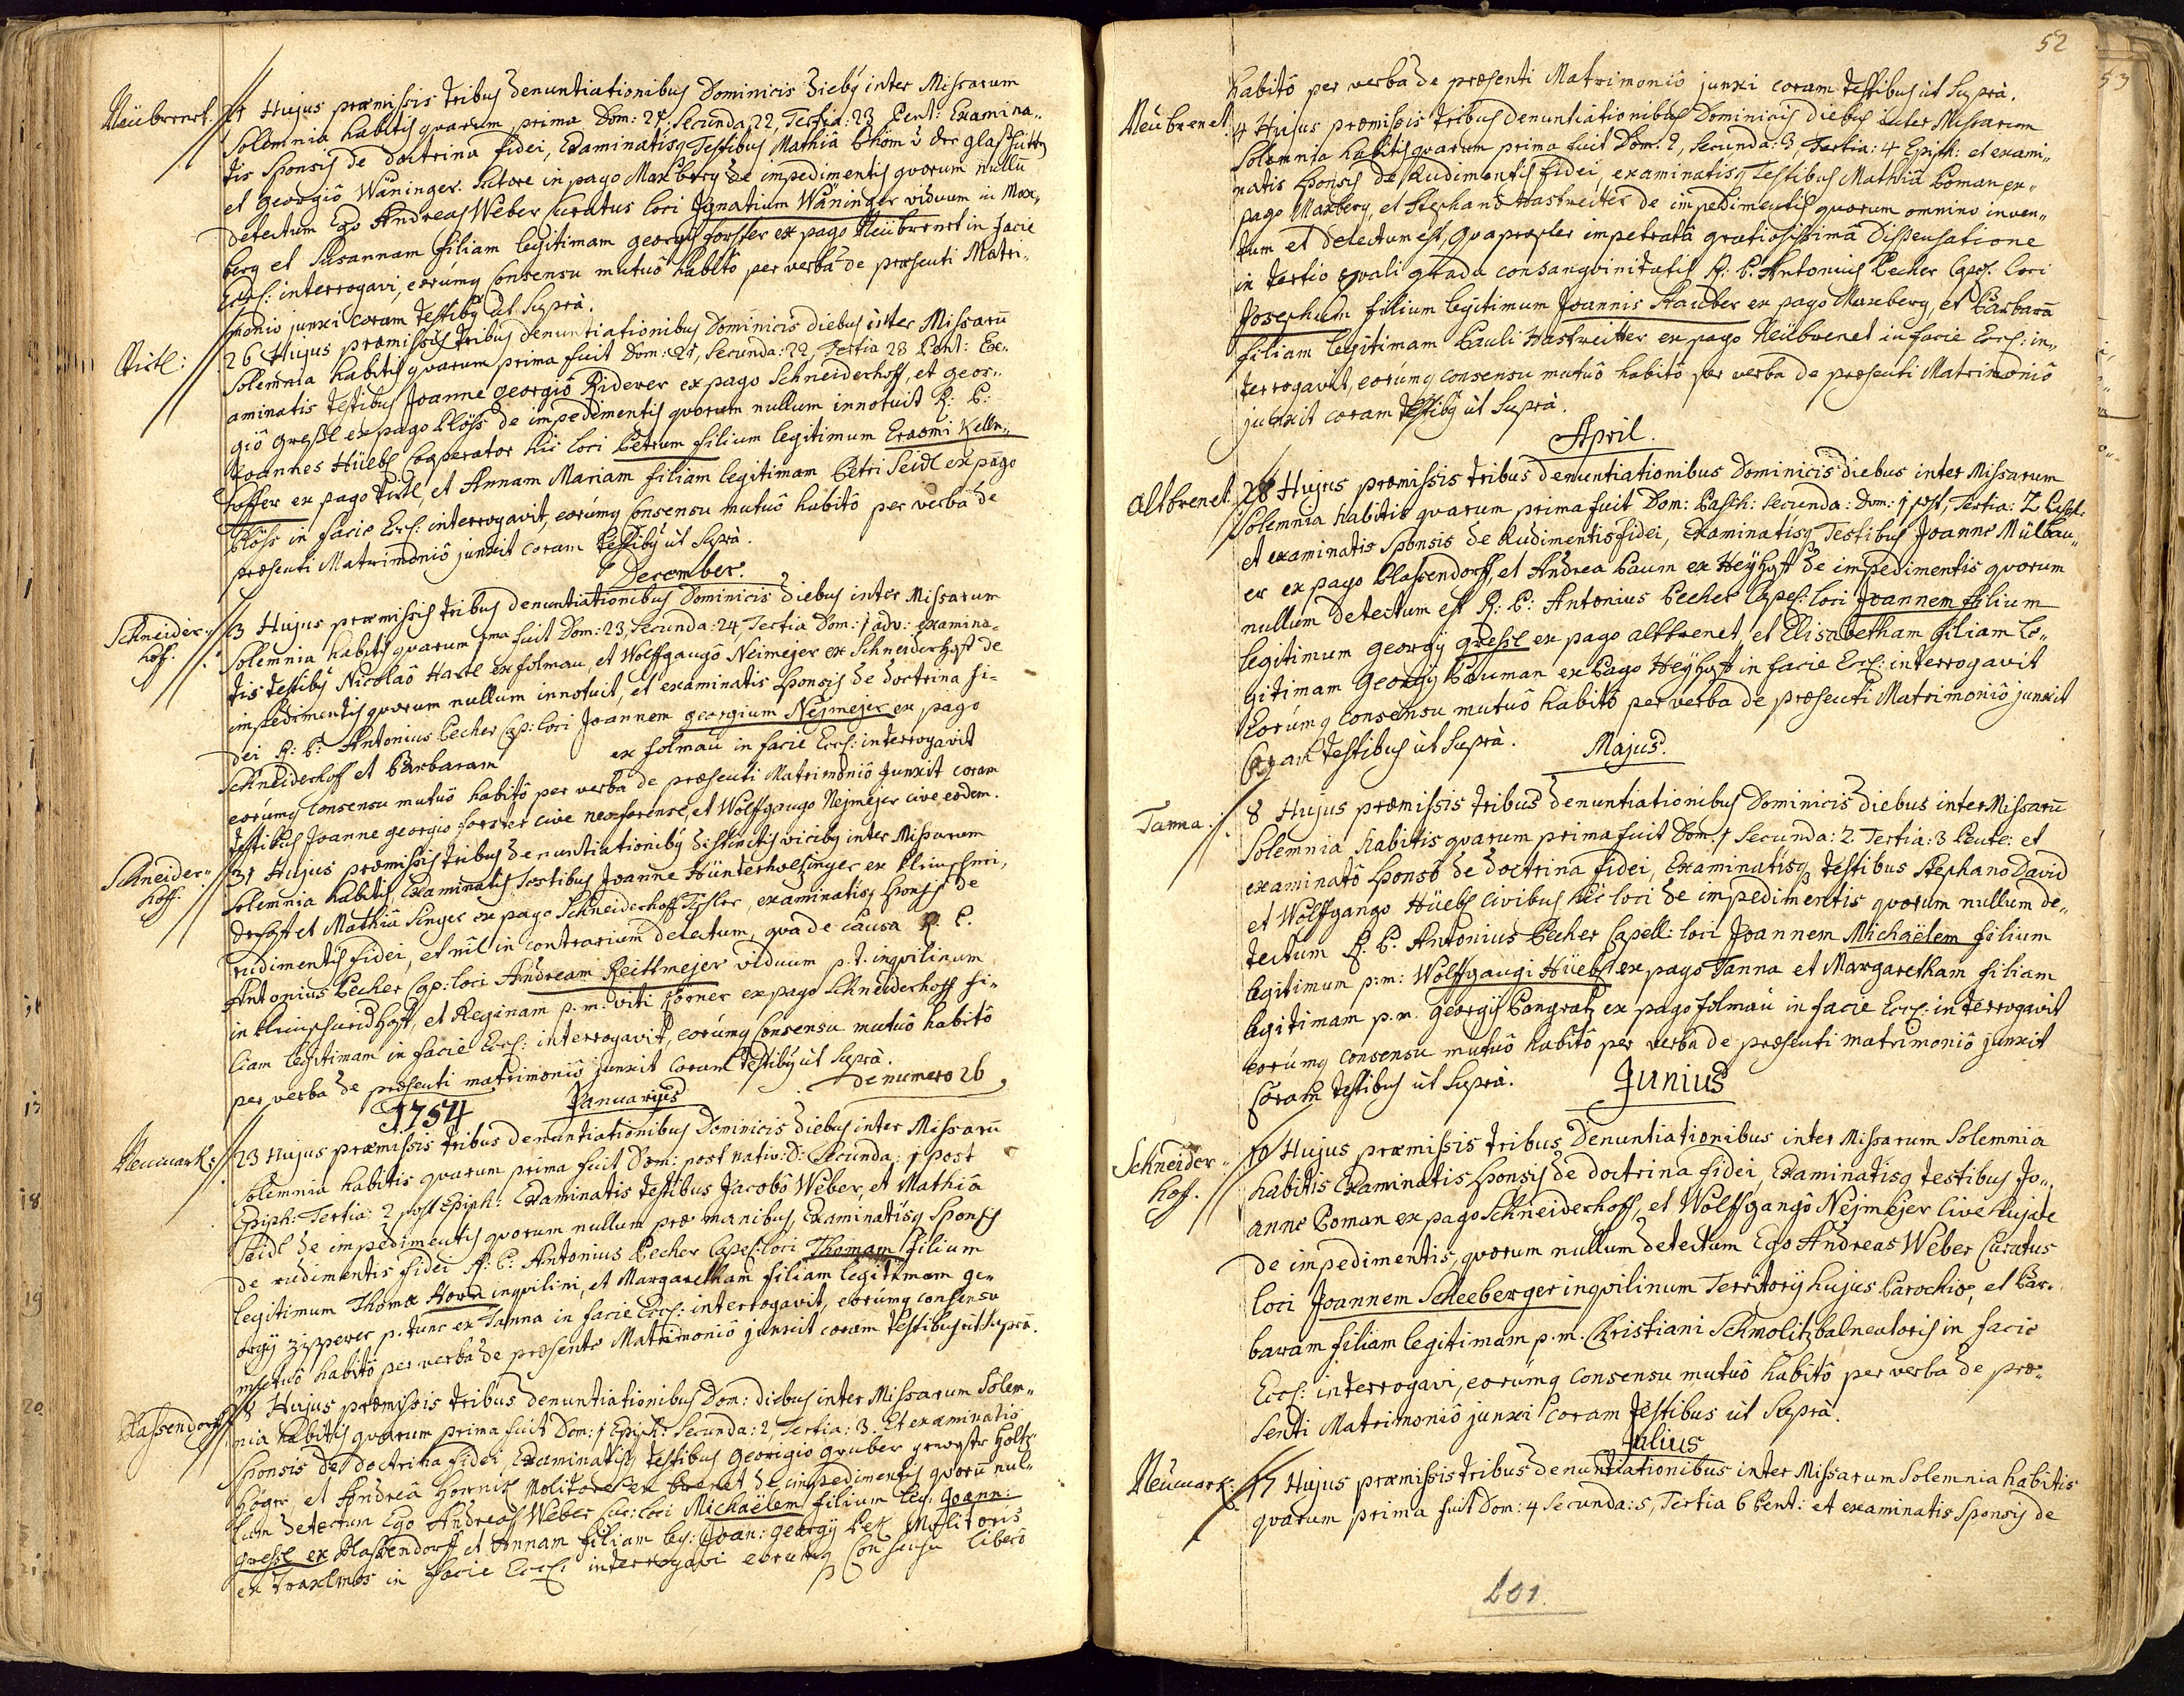 Neübrenet. 21 Hujus præmissis tribus denuntiationibus Dominicis dieb9 inter Missarum
Solemnia habitis quarum prima Dom: 21. Secunda 22, Tertia: 23 Pent: Examina„
tis Sponsis de doctrina fidei, Examinatisq Testibus Mathiâ Böhm v der glashütten
et Georgiô Wäninger Sutore in pago Maxberg de impedimentis quorum nullū
detectum Ego Andreas Weber Curatus loci Ignatium Wäninger viduum in Max„
berg et Susannam filiam legitimam georgij forster ex pago Neübrenet in facie
Eccl: interrogavi, eorúmq Consensu mutuô habitô per verba de præsenti Matri„
moniô junxi coram testib9 ut Suprà.
Viertl: 26 Hujus præmissis tribus denuntiationibus Dominicis diebus inter Missarū
Solemnia habitis quarum prima fuit Dom: 21, Secunda: 22, Tertia 23 Pent: Ex„
aminatis testibus Joanne georgiô Riderer ex pago Schneiderhoff, et geor„
giô greßl ex pago Plöss de impedimentis quorum nullum innotuit R: P:
Joannes Hüebl Cooperator hic loci Petrum filium legitimum Erasmi Kelln„
hoffer ex pago Virtl, et Annam Mariam filiam legitimam Petri Seidl ex pago
Plöss in facie Eccl: interrogavit, eorúmq Consensu mutuô habitô per verba de
præsenti Matrimoniô junxit coram testib9 ut Suprà.
December.
Schneider„
hoff. 3 Hujus præmissis tribus denuntiationibus Dominicis diebus inter Missarum
Solemnia habitis quarum 1ma fuit Dom: 23, Secunda: 24, Tertia Dom: 1 adv: examina„
tis testib9 Nicolaô Hartl ex folmau, et Wolffgangô Neimejer ex Schneiderhoff de
impedimentis quorum nullum innotuit, et examinatis Sponsis de doctrina fi„
dei R: P: Antonius Pecher Cap: loci Joannem georgium Nejmejer ex pago
Schneiderhoff et Barbaram ex folmau in facie Eccl: interrogavit
eorúmq consensu mutuô habitô per verba de præsenti Matrimoniô Junxit coram
testibus Joanne georgio forster cive neoforense, et Wolffgango Nejmejer cive eodem.
Schneider„
hoff. 31 Hujus præmissis tribus denuntiationib9 distinctis vicib9 inter Missarum
Solemnia habitis, Examinatis testibus Joanne Hünterholtzinger ex Kleinschnei„
derhoff et Mathiâ Singer ex pago Schneiderhoff Tischler, examinatisq Sponsis de
rudimentis fidei, et nil in contrarium detectum, qua de causa R. P.
Antonius Pecher Cap: loci Andream Reittmejer viduum p.t. inquilinum
in Kleinschneidhoff, et Reginam p.m. viti Körner ex pago Schneiderhoff fi„
liam legitimam in facie Eccl: interrogavit, eorúmq Consensu mutuô habitô
per verba de præsenti matrimoniô junxit coram testib9 ut Suprà.
de numero 26
1754 Januarius
Neumark: 23 Hujus præmissis tribus denuntiationibus Dominicis diebus inter Missarū
Solemnia habitis quarum prima fuit Dom: post nativ: D: Secunda: 1 post
Epiph: Tertia: 2 post Epiph: Examinatis testibus Jacobô Weber, et Mathiâ
Seidl de impedimentis quorum nullum præ manibus, Examinatisq Sponsis
de rudimentis fidei R: P: Antonius Pecher Capel: loci Thomam filium
legitimum Thomæ Horn inquilini, et Margaretham filiam legitimam ge„
orgij Zipperer p. tunc ex Tanna in facie Eccl: interrogavit, eorúmq consensu
mutuô habitô per verba de præsente Matrimoniô junxit coram testibus ut suprà.
Plassendorff Hujus præmissis tribus denuntiationibus Dom: diebus inter Missarum Solem„
nia habitis quarum prima fuit Dom: 1 Epiph: Secunda: 2, Tertia: 3. Et examinatis
Sponsis de doctrina fidei, Examinatisq testibus Georigio gruber Holtz
Höger et Andrea Hornik Molitore ex brenet de impedimentis quorū nul„
lum detectum Ego Andreas Weber Cur: loci Michaëlem filium leg: Joann:
greßl ex Plassendorff et Annam filiam leg: Joan: georgij Molitoris
ex in facie Eccl: interrogavi eorumq Consensu liberô
52
habitô per verba de præsenti Matrimoniô junxi coram testibus ut Suprà.
Neubrenet. 4 Hujus præmissis tribus denuntiationibus Dominicis diebus inter Missarum
Solemnia habitis quarum prima fuit Dom: 2, Secunda: 3 Tertia: 4 Epiph: et exami„
natis Sponsis de Rudimentis fidei, examinatisq Testibus Mathiâ Poman ex„
pago Maxberg, et Stephano Hastreitter de impedimentis quorum omnino inven„
tum et detectum est, Quapropter impetratâ gratiosissimâ Dispensatione
in tertio æquali gradu consanguinitatis R: P: Antonius Pecher Capel: loci
Josephum filium legitimum Joannis Stauber ex pago Maxberg, et Barbarā
filiam legitimam Pauli Hastreitter ex pago Neübrenet in facie Eccl: in„
terrogavit, eorúmq consensu mutuô habitô per verba de præsenti Matrimoniô
junxit coram testib9 ut Suprà.
April.
Altbrenet. 28 Hujus præmissis tribus denuntiationibus Dominicis diebus inter Missarum
Solemnia habitis quarum prima fuit Dom: Pasch: secunda: Dom: 1 post, Tertia: 2 Pasch:
et examinatis Sponsis de Rudimentis fidei, Examinatisq Testibus Joanne Mülbau„
er ex pago Plassendorff, et Andrea Paum ex Heÿhoff de impedimentis quorum
nullum detectum est R: P: Antonius Pecher Capel: loci Joannem filium
legitimum georgij greßl ex pago altbrenet, et Elisabetham filiam le„
gitimam Georgij Bauman ex Pago Heÿhoff in facie Eccl: interrogavit
Eorúmq consensu mutuô habitô per verba de præsenti Matrimoniô junxit
Coram testibus ut Suprà.
Majus.
Tanna. 8 Hujus præmissis tribus denuntiationibus Dominicis diebus inter Missarū
Solemnia habitis quarum prima fuit Dom: 1 Secunda: 2 Tertia: 3 Pente: et
examinatô Sponsô de doctrina fidei, Examinatisq testibus Stephano David
et Wolffgango Hüebl Civibus hic loci de impedimentis quorum nullum de„
tectum R: P: Antonius Pecher Capell: loci Joannem Michaëlem filium
legitimum p:m: Wolffgangi Hüebl ex pago Tanna et Margaretham filiam
legitimam p.m. Georgij Pongratz ex pago folmau in facie Eccl: interrogavit
eorúmq consensu mutuô habitô per verba de præsenti matrimoniô junxit
Coram testibus ut Suprà.
Junius
Schneider„
hoff. 10 Hujus præmissis tribus Denuntiationibus inter Missarum Solemnia
habitis Examinatis Sponsis de doctrina fidei, Examinatisq testibus Jo„
anne Poman ex pago Schneiderhoff, et Wolffgangô Nejmejer Cive hujate
de impedimentis, quorum nullum detectum Ego Andreas Weber Curatus
loci Joannem Scheeberger inquilinum Territorij hujus Parochiæ, et Bar„
baram filiam legitimam p.m. Christiani Schmolitz balneatoris in facie
Eccl: interrogavi, eorúmq consensu mutuô habitô per verba de præ„
senti Matrimoniô junxi coram Testibus ut Suprà.
Julius
Neümark: 17 Hujus præmissis tribus denuntiationibus inter Missarum Solemnia habitis
quarum prima fuit Dom: 4 Secunda: 5, Tertia 6 Pent: et examinatis Sponsis de
101.
53